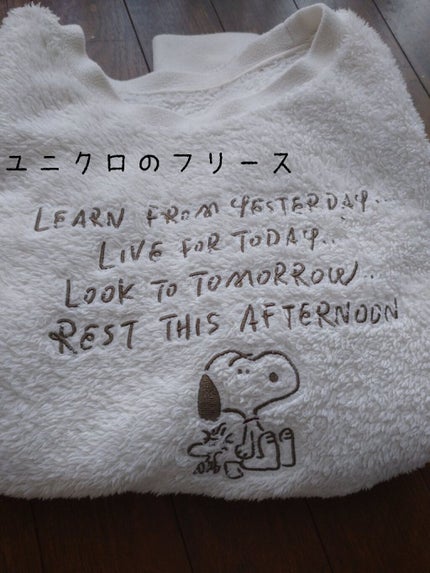 ユニクロのフリース
LEARN FROM YESTERDAY..
LIVE FOR TODAY..
LOOK TO TOMORROW..
REST THIS AFTERNOON